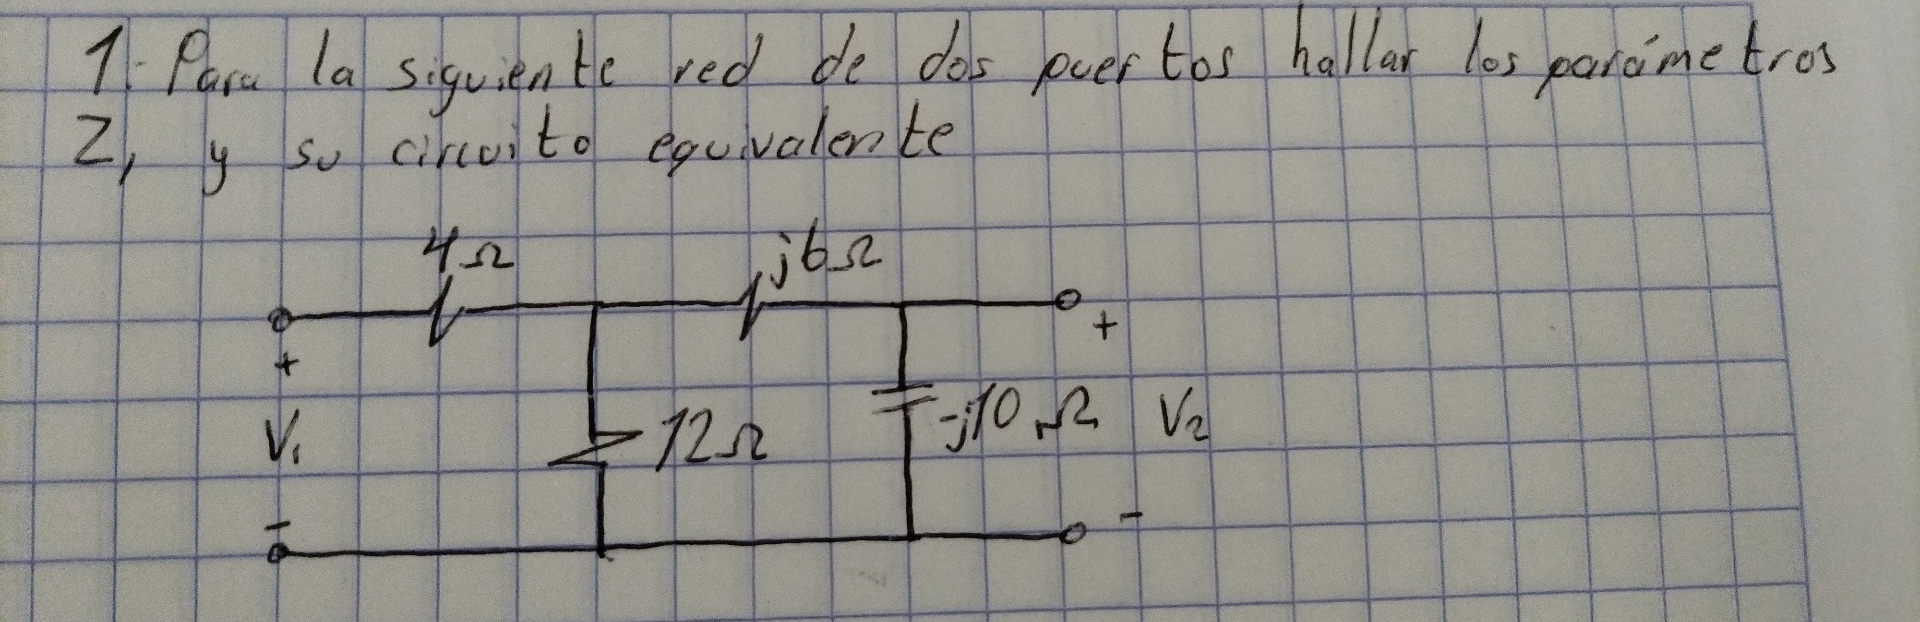 1.- Para la siguiente red de dos puertos hallar los parámetros
Z, y su circuito equivalente
4Ω
j6Ω
+
+
V₁
12Ω
-j10 Ω
V₂
-
-